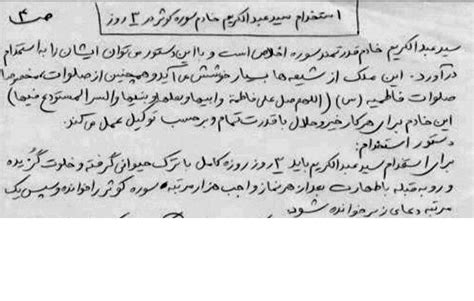 استخدام سید عبدالکریم خادم سوره کوثر در ۳ روز
ص ۴
سید عبدالکریم خادم قدرتمند سوره اخلاص است و با این دستور می توان ایشان را به استخدام
درآورد. این ملک از شیعه ها بسیار خوشش می آید و همچنین از صلوات مخصوصا
صلوات فاطمیه (س) (اللهم صل علی فاطمة و ابیها و بعلها و بنیها و السر المستودع فیها)
این خادم برای هر کار خیر و حلال با قدرت تمام و بر حسب توکیل عمل می کند.
دستور استخدام:
برای استخدام سید عبدالکریم باید ۳ روز روزه کامل با ترک حیوانی گرفته و خلوت گزیده
و رو به قبله با طهارت بعد از هر نماز واجب هزار مرتبه سوره کوثر را خوانده و سپس یک
مرتبه دعای زیر خوانده شود.